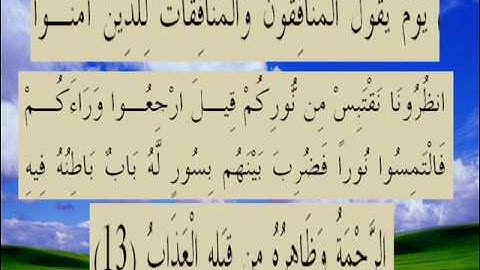 يَوْمَ يَقُولُ الْمُنَافِقُونَ وَالْمُنَافِقَاتُ لِلَّذِينَ آمَنُـــوا
انظُرُونَا نَقْتَبِسْ مِن نُّورِكُمْ قِيـلَ ارْجِعُـــوا وَرَاءَكُـــمْ
فَالْتَمِسُوا نُوراً فَضُرِبَ بَيْنَهُم بِسُورٍ لَّهُ بَابٌ بَاطِنُهُ فِيهِ
الرَّحْمَةُ وَظَاهِرُهُ مِن قِبَلِهِ الْعَذَابُ (13)